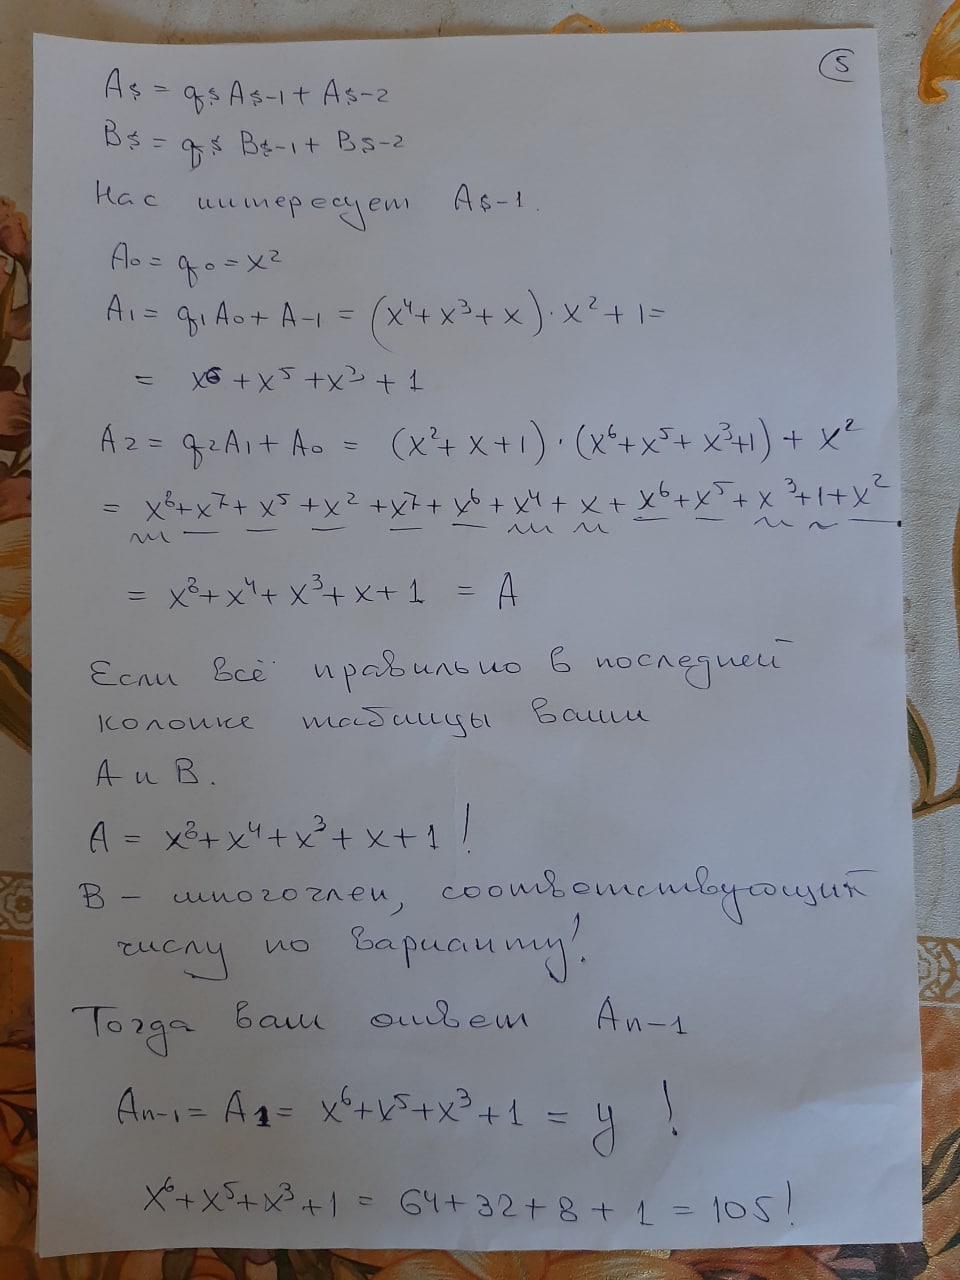 5
A$ = q$ A$-1 + A$-2
B$ = q$ B$-1 + B$-2
Нас интересует A$-1.
A0 = q0 = x²
A1 = q1A0 + A-1 = (x⁴+x³+x)·x²+1=
= x⁶+x⁵+x³+1
A2 = q2A1 + A0 = (x²+x+1)·(x⁶+x⁵+x³+1)+x²
= x⁸+x⁷+x⁵+x²+x⁷+x⁶+x⁴+x+x⁶+x⁵+x³+1+x²
= x⁸+x⁴+x³+x+1 = A
Если всё правильно в последней
колонке таблицы ваши
A и B.
A = x⁸+x⁴+x³+x+1!
B – многочлен, соответствующий
числу по варианту!
Тогда ваш ответ An-1
An-1 = A1 = x⁶+x⁵+x³+1 = y!
x⁶+x⁵+x³+1 = 64+32+8+1 = 105!